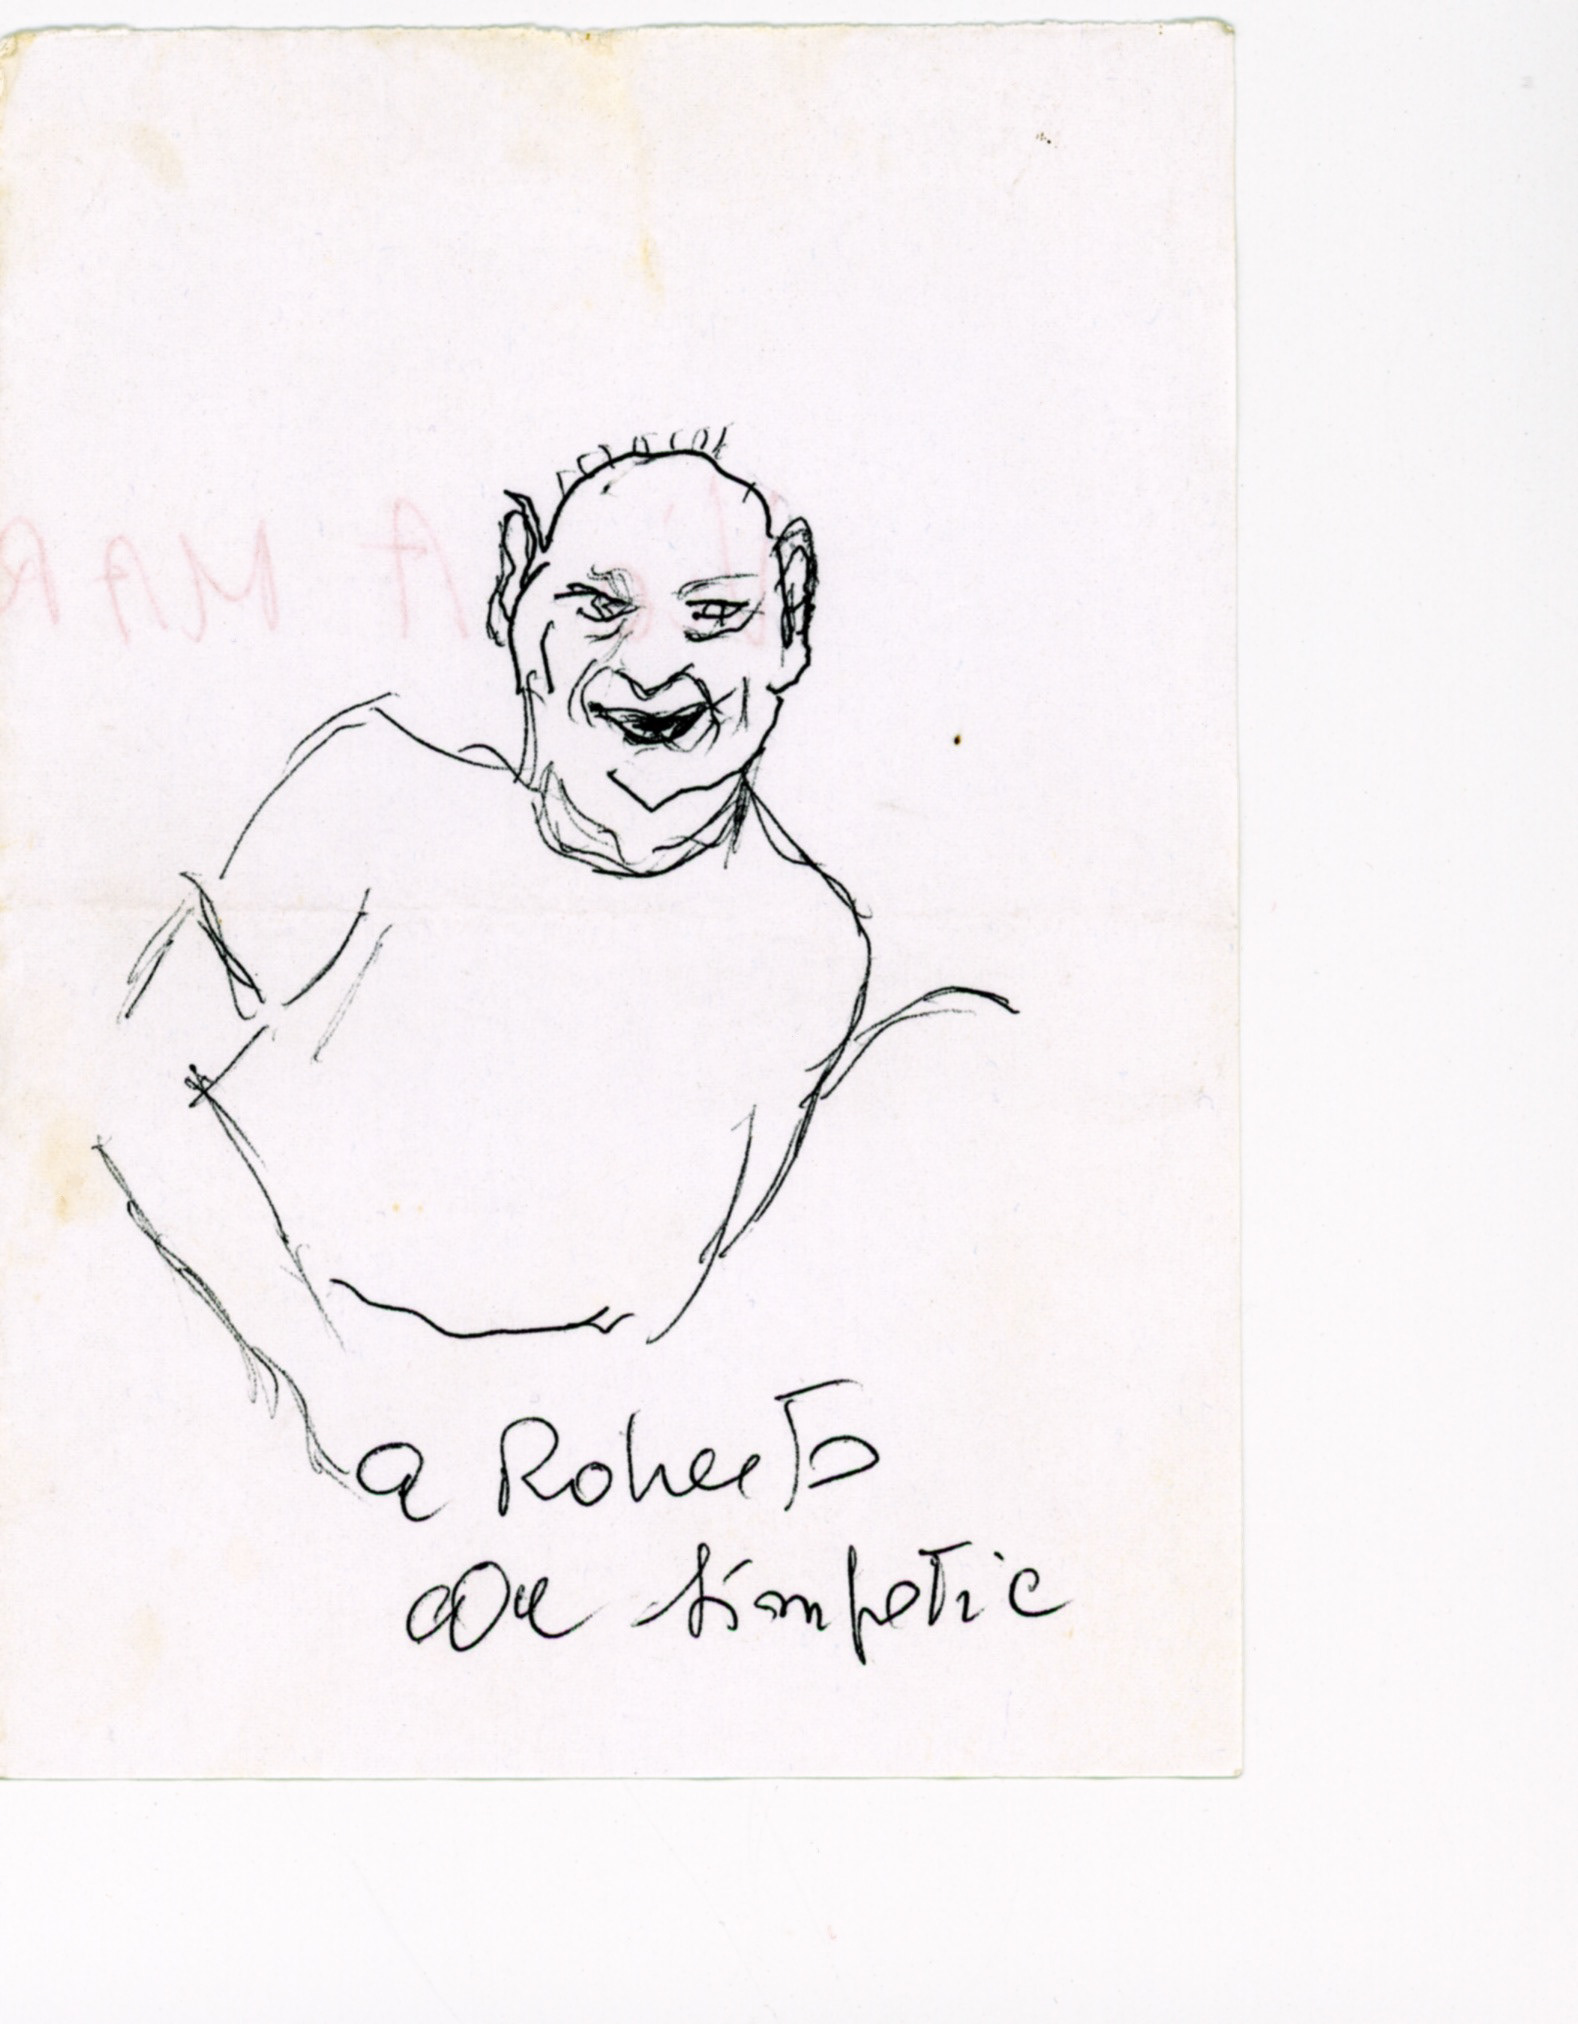 a Roberto
con simpatic